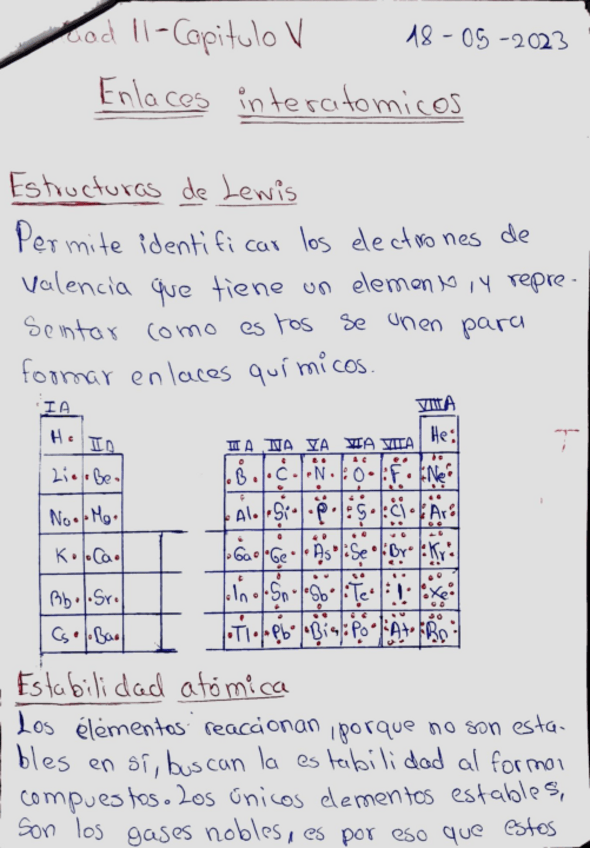 dad II-Capitulo V 18-05-2023
Enlaces interatomicos
Estructuras de Lewis
Permite identificar los electrones de
valencia que tiene un elemento, y repre-
sentar como estos se unen para
formar enlaces químicos.
IA VIIIA
H He
IIA IIIA IVA VA VIA VIIA
Li Be B C N O F Ne
Na Mg Al Si P S Cl Ar
K Ca Ga Ge As Se Br Kr
Rb Sr In Sn Sb Te I Xe
Cs Ba Tl Pb Bi Po At Rn
Estabilidad atómica
Los elementos reaccionan, porque no son esta-
bles en sí, buscan la estabilidad al formar
compuestos. Los únicos elementos estables,
son los gases nobles, es por eso que estos